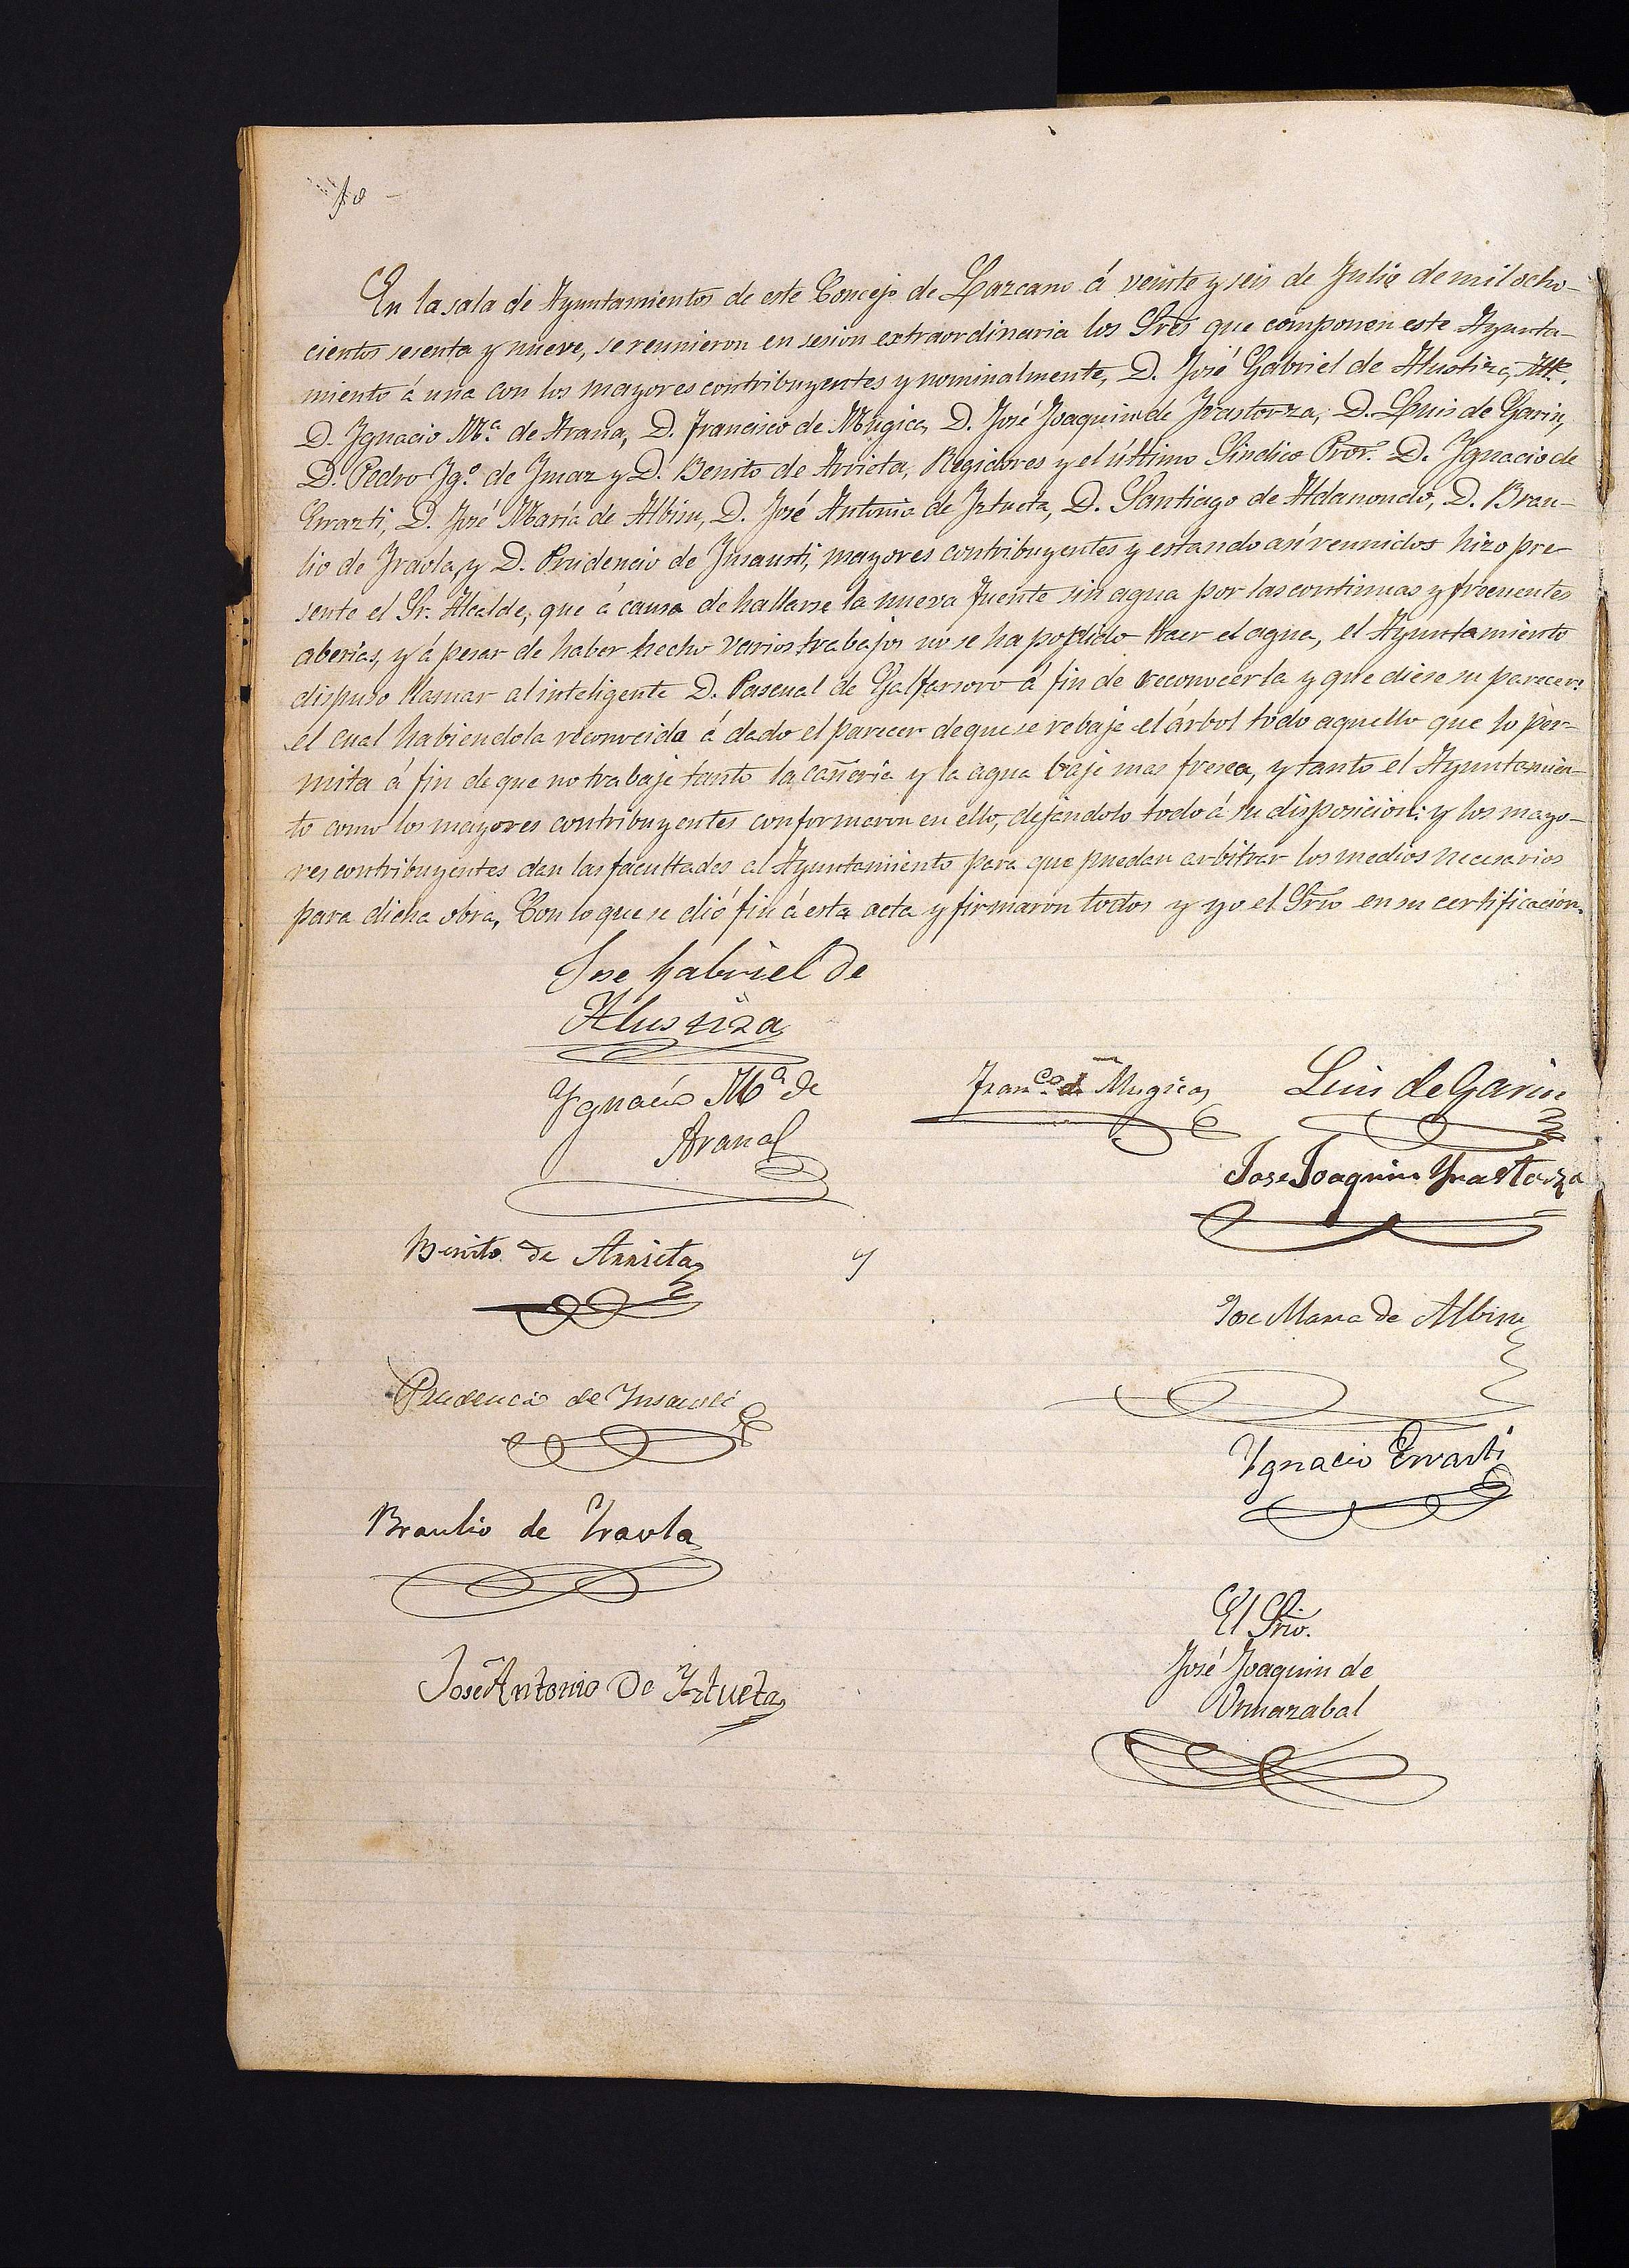 En la sala de Ayuntamientos de este Concejo de Lazcano á veinte y seis de Julio de mil ocho-
cientos sesenta y nueve, se reunieron en sesion extraordinaria los Sres que componen este Ayunta-
miento á una con los mayores contribuyentes y nominalmente, D. José Gabriel de Alustiza, Alle.
D. Ignacio M.ª de Arana, D. Francisco de Mugica, D. José Joaquin de Irastorza, D. Luis de Garin,
D. Pedro Ig.º de Imaz y D. Benito de Arrieta, Regidores y el último Sindico Pror. D. Ignacio de
Errazti, D. José María de Albisu, D. José Antonio de Iztueta, D. Santiago de Aldanondo, D. Brau-
lio de Iraola, y D. Prudencio de Insausti, mayores contribuyentes y estando así reunidos hizo pre-
sente el Sr. Alcalde, que á causa de hallarse la nueva fuente sin agua por las continuas y frecuentes
aberias, y á pesar de haber hecho varios trabajos no se ha podido traer el agua, el Ayuntamiento
dispuso llamar al inteligente D. Pascual de Galfarsoro á fin de reconocerla y que diese su parecer:
el cual habiendola reconocida á dado el parecer de que se rebaje el árbol todo aquello que lo per-
mita á fin de que no trabaje tanto la cañeria y la agua baje mas fresca, y tanto el Ayuntamien-
to como los mayores contribuyentes conformaron en ello, dejandolo todo á su disposicion: y los mayo-
res contribuyentes dan las facultades al Ayuntamiento para que puedan arbitrar los medios necesarios
para dicha obra, Con lo que se dió fin á esta acta y firmaron todos y yo el Srio en su certificación.
Jose Gabriel de
Alustiza
Ygnacio Mª de
Arana
Franco. de Mugica
Luis de Garin
Jose Joaquin Yrastorza
Benito de Arrieta
y
Jose Maria de Albisu
Prudencio de Insausti
Ygnacio Errasti
Braulio de Yraola
El Srio.
José Joaquin de
Ormazabal
José Antonio De Yztueta